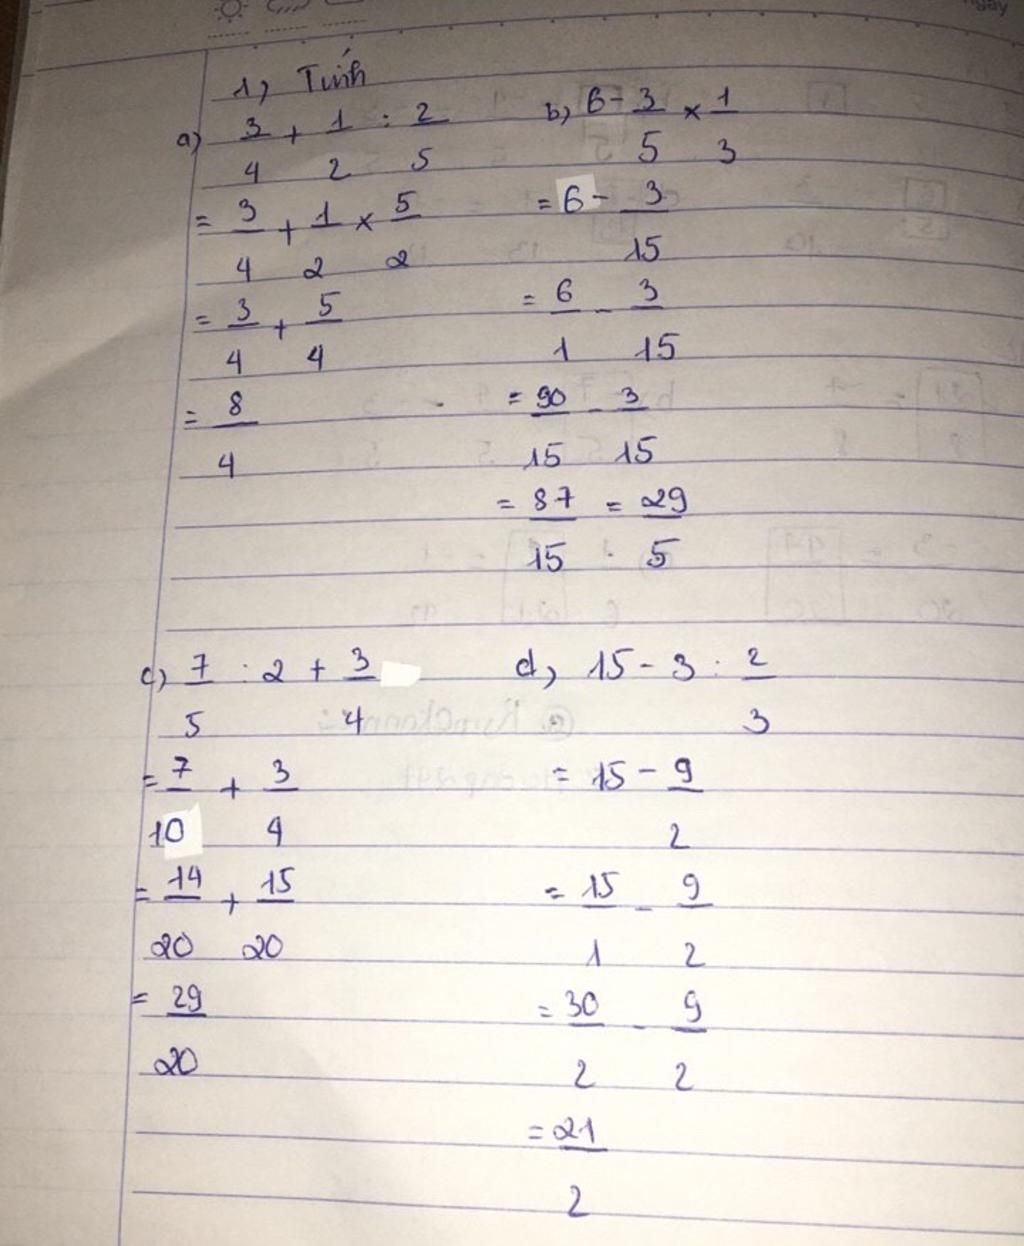 1, Tính
a) 3/4 + 1/2 : 2/5
= 3/4 + 1/2 × 5/2
= 3/4 + 5/4
= 8/4
b, 6 - 3/5 × 1/3
= 6 - 3/15
= 6/1 - 3/15
= 90/15 - 3/15
= 87/15 = 29/5
c) 7/5 : 2 + 3/4
= 7/10 + 3/4
= 14/20 + 15/20
= 29/20
d, 15 - 3 : 2/3
= 15 - 9/2
= 15/1 - 9/2
= 30/2 - 9/2
= 21/2